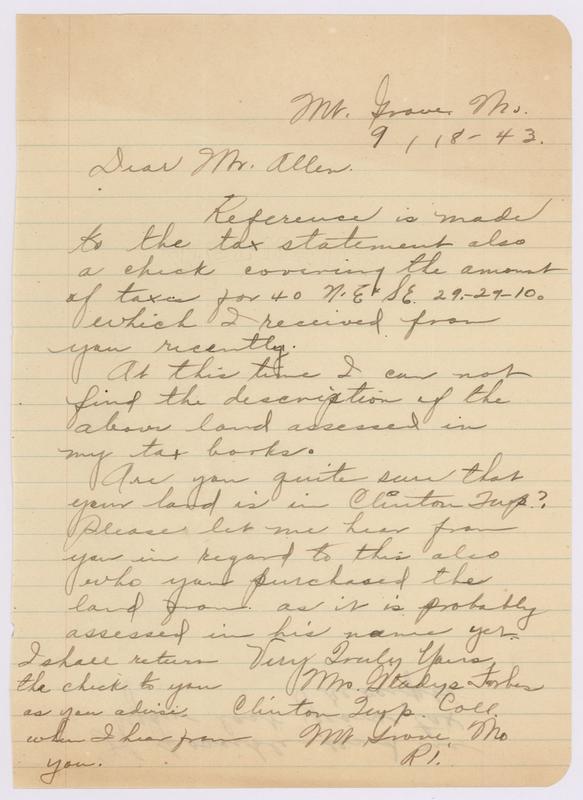 Mt. Grove, Mo.
9 / 18 - 43.
Dear Mr. Allen.
Reference is made
to the tax statement also
a check covering the amount
of taxes for 40 N.E. SE. 29-29-10.
which I received from
you recently.
At this time I can not
find the description of the
above land assessed in
my tax books.
Are you quite sure that
your land is in Clinton Twp.?
Please let me hear from
you in regard to this also
who you purchased the
land from as it is probably
assessed in his name yet.
I shall return
the check to you
as you advise
when I hear from
you.
Very Truly Yours,
Mrs. Gladys Forbes
Clinton Twp. Coll.
Mt Grove Mo
R1.